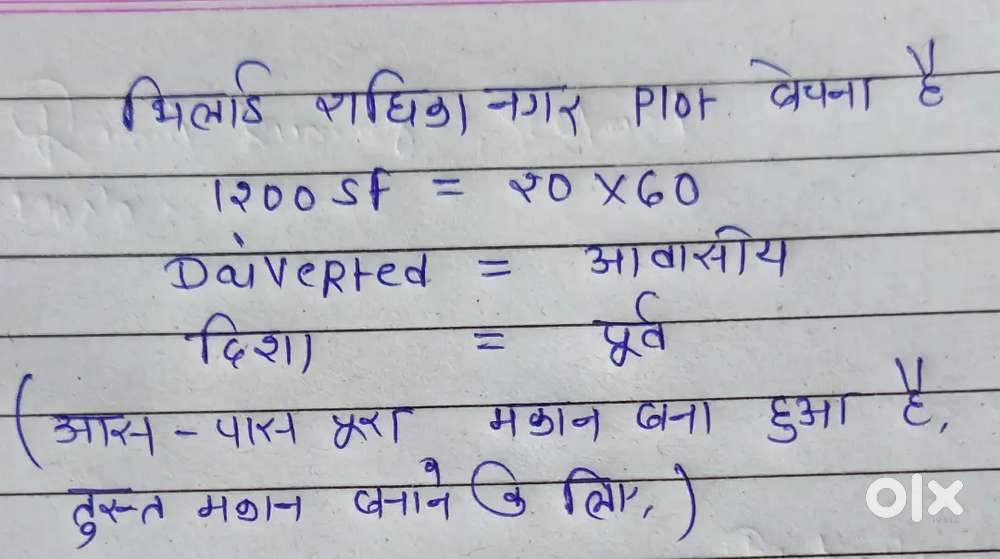 भिलाई राधिका नगर Plot बेचना है
1200 SF = 20 X 60
Daiverted = आवासीय
दिशा = पूर्व
( आस - पास पूरा मकान बना हुआ है,
तुरन्त मकान बनाने के लिए, )
olx